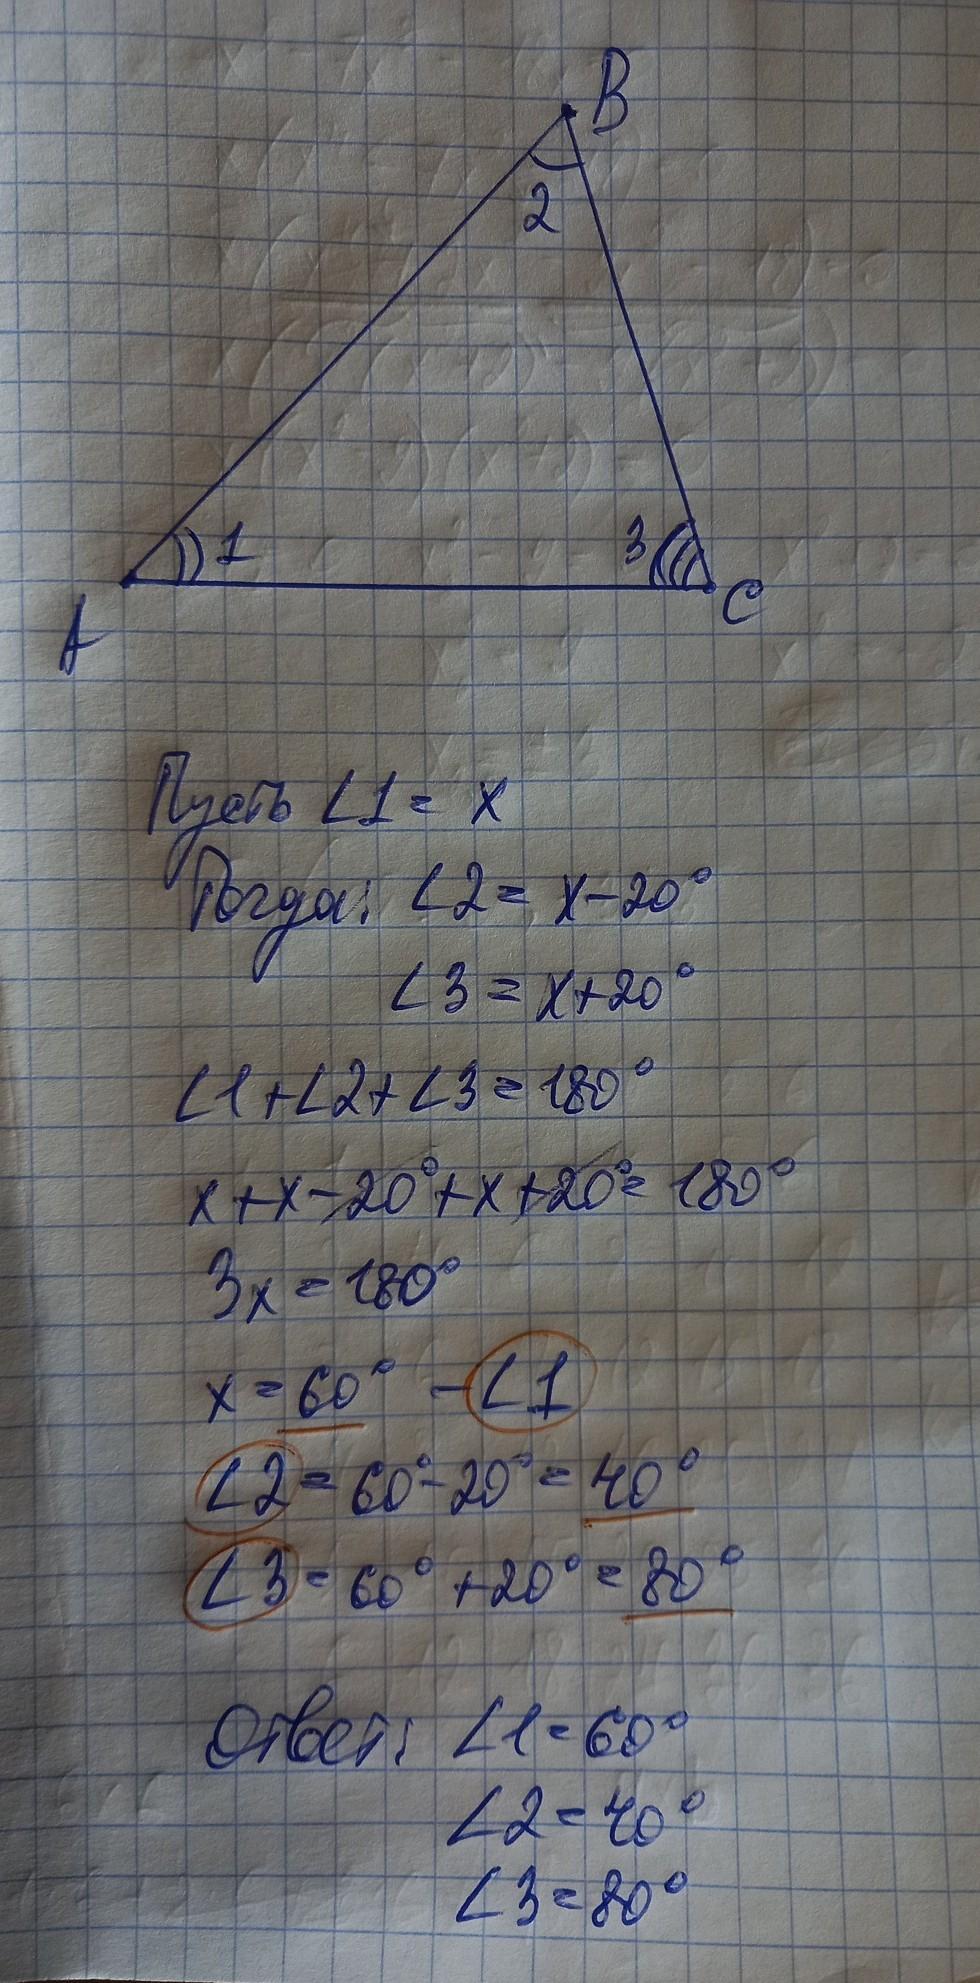 B
2
1
3
A
C
Пусть ∠1 = x
Тогда: ∠2 = x-20°
∠3 = x+20°
∠1+∠2+∠3=180°
x+x-20°+x+20°=180°
3x=180°
x=60° -∠1
∠2=60°-20°=40°
∠3=60°+20°=80°
Ответ: ∠1=60°
∠2=40°
∠3=80°